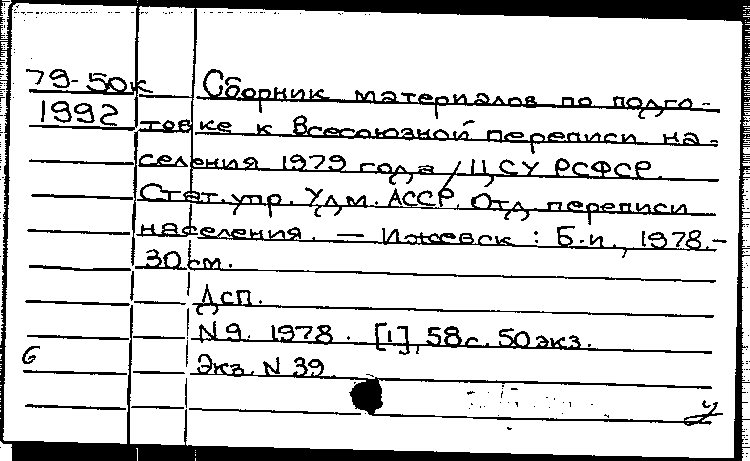 79-50к Сборник материалов по подго-
1992 товке к Всесоюзной переписи на-
селения 1979 года / ЦСУ РСФСР.
Стат. упр. Удм. АССР. Отд. переписи
населения. — Ижевск : Б.и., 1978.-
30 см.
Дсп.
N 9. 1978. [1], 58 с. 50 экз.
6 Экз. N 39.